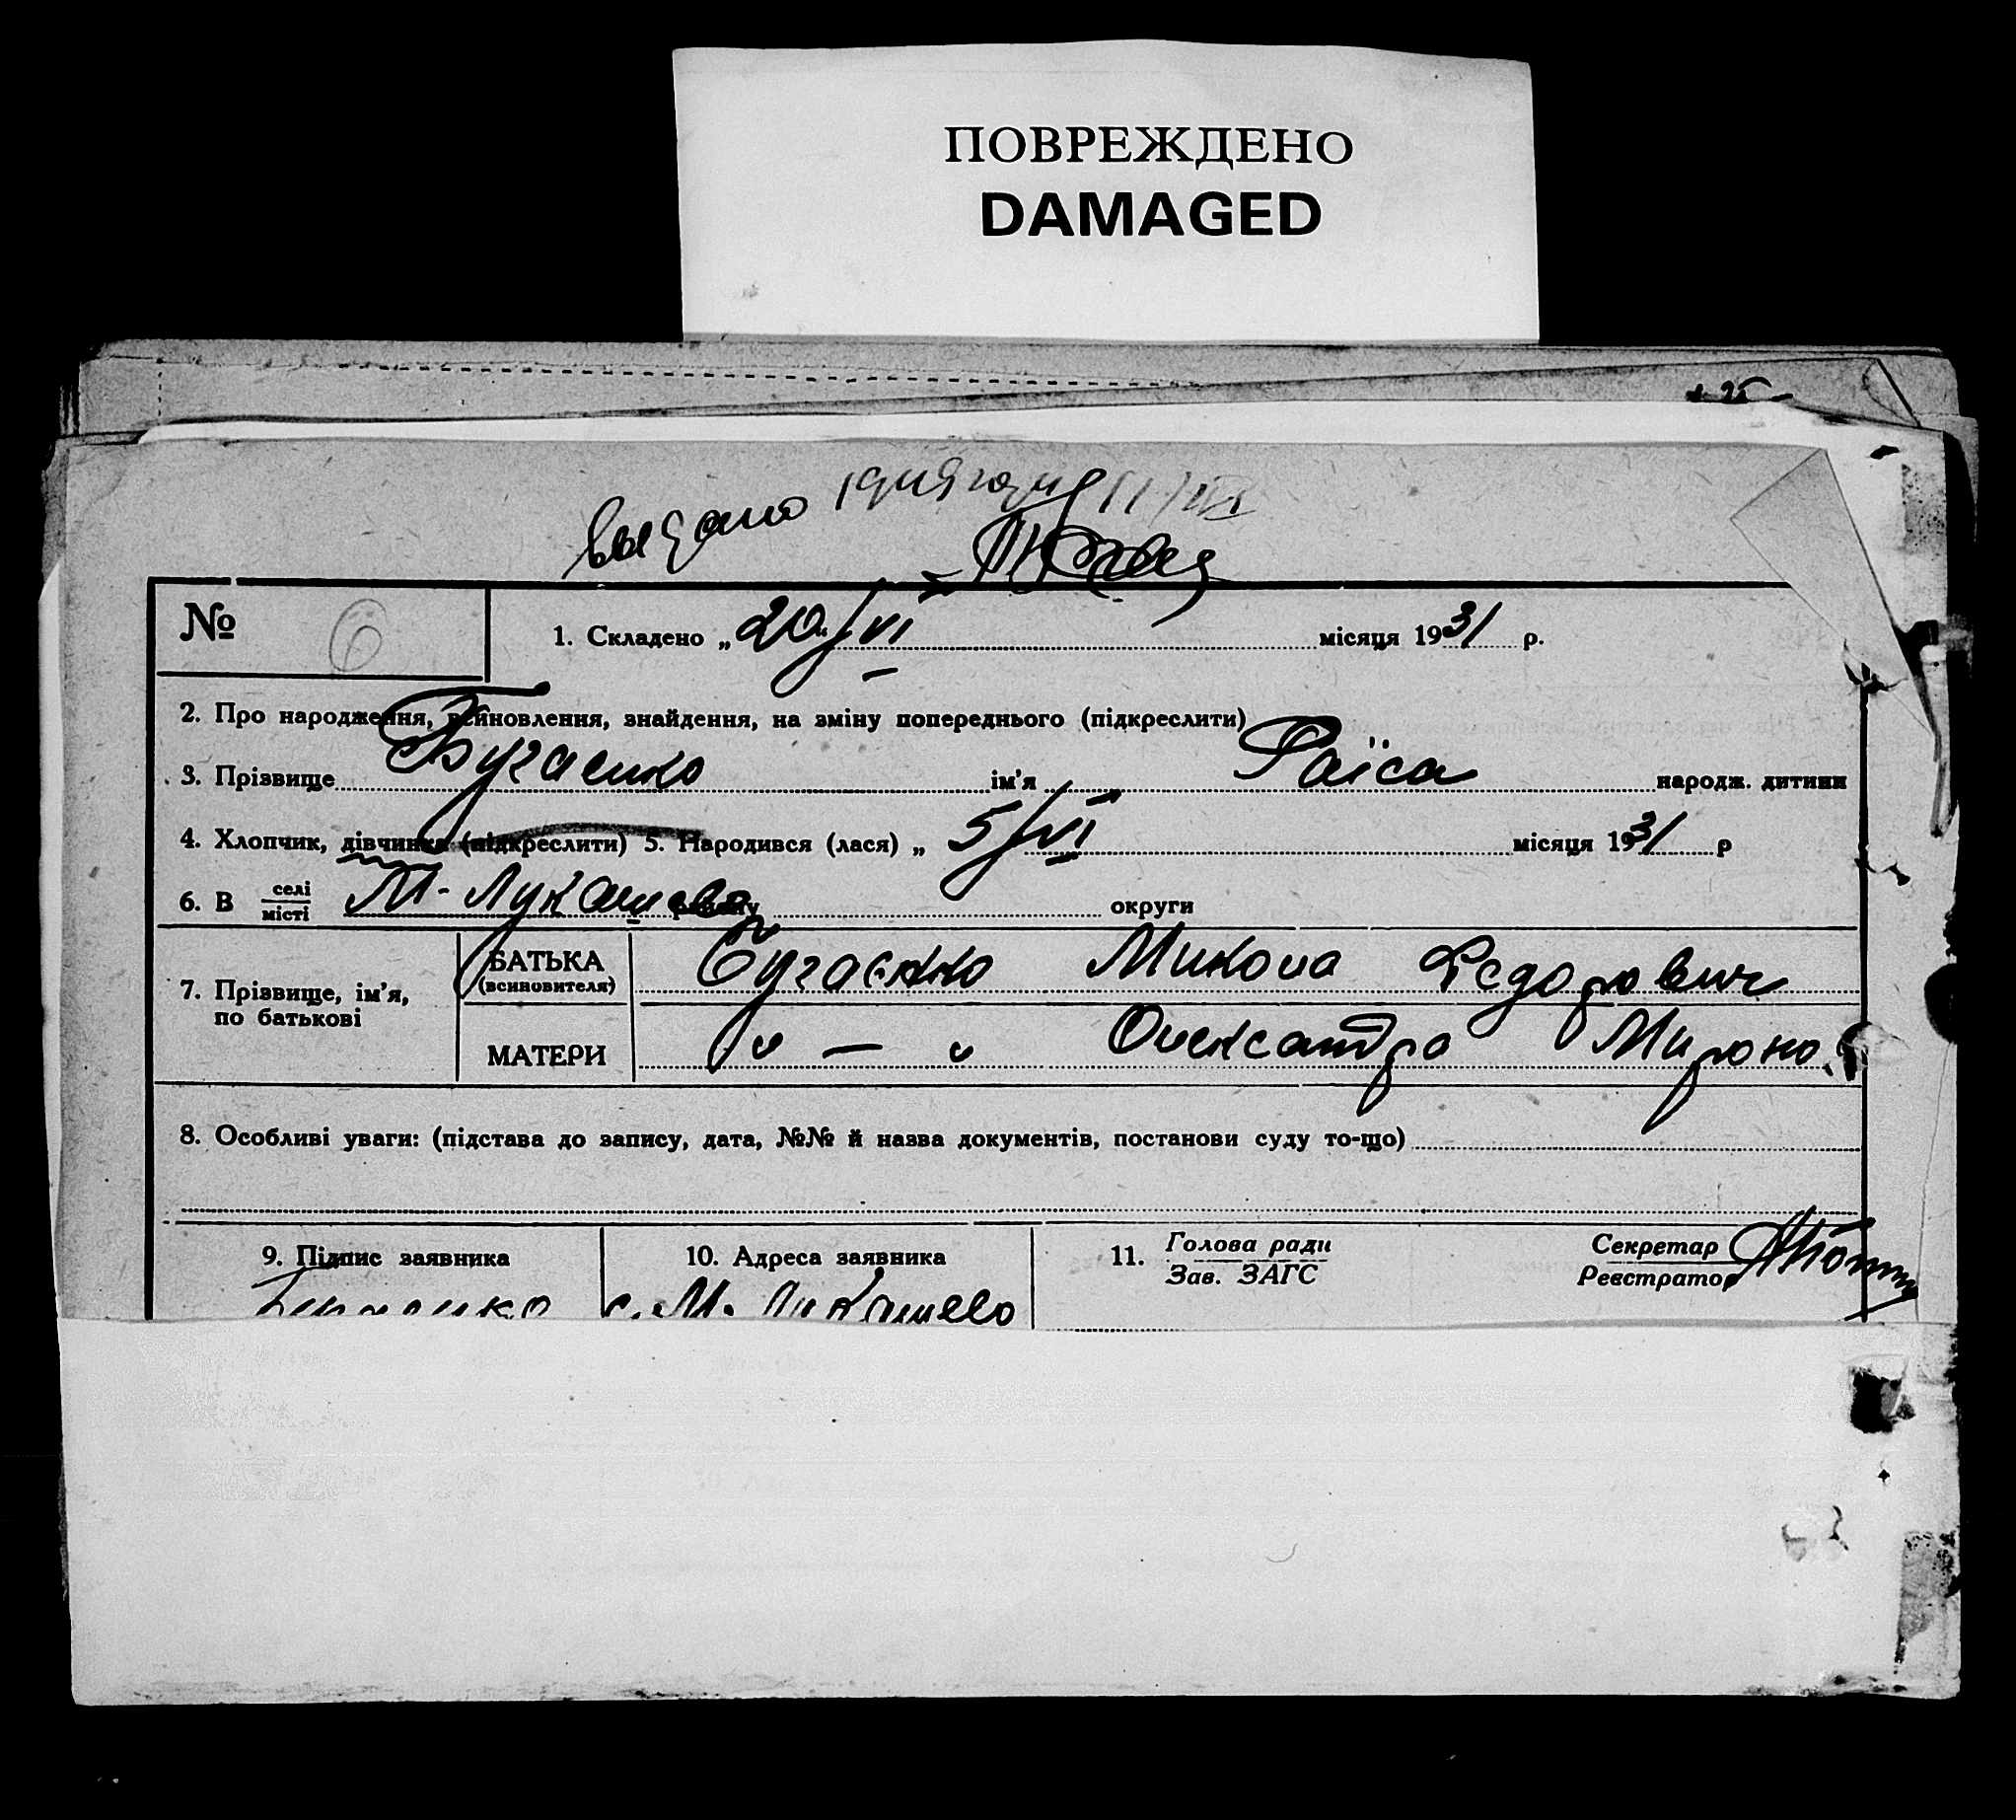 ПОВРЕЖДЕНО
DAMAGED
выдано
№ 6
1. Складено „20"/VI місяця 1931 р.
2. Про народження, всиновлення, знайдення, на зміну попереднього (підкреслити)
3. Прізвище Бугаенко ім'я Раїса народж. дитини
4. Хлопчик, дівчинка (підкреслити) 5. Народився (лася) „5/VI місяця 1931 р
6. В селі місті М-Лукашево району округи
7. Прізвище, ім'я, по батькові
БАТЬКА (всиновителя) Бугаєнко Микола Федорович
МАТЕРИ " — " Олександра Мироно
8. Особливі уваги: (підстава до запису, дата, №№ й назва документів, постанови суду то-що)
9. Підпис заявника 10. Адреса заявника 11. Голова ради Зав. ЗАГС Секретар Реєстратор
Бугаенко с. М. Лукашево